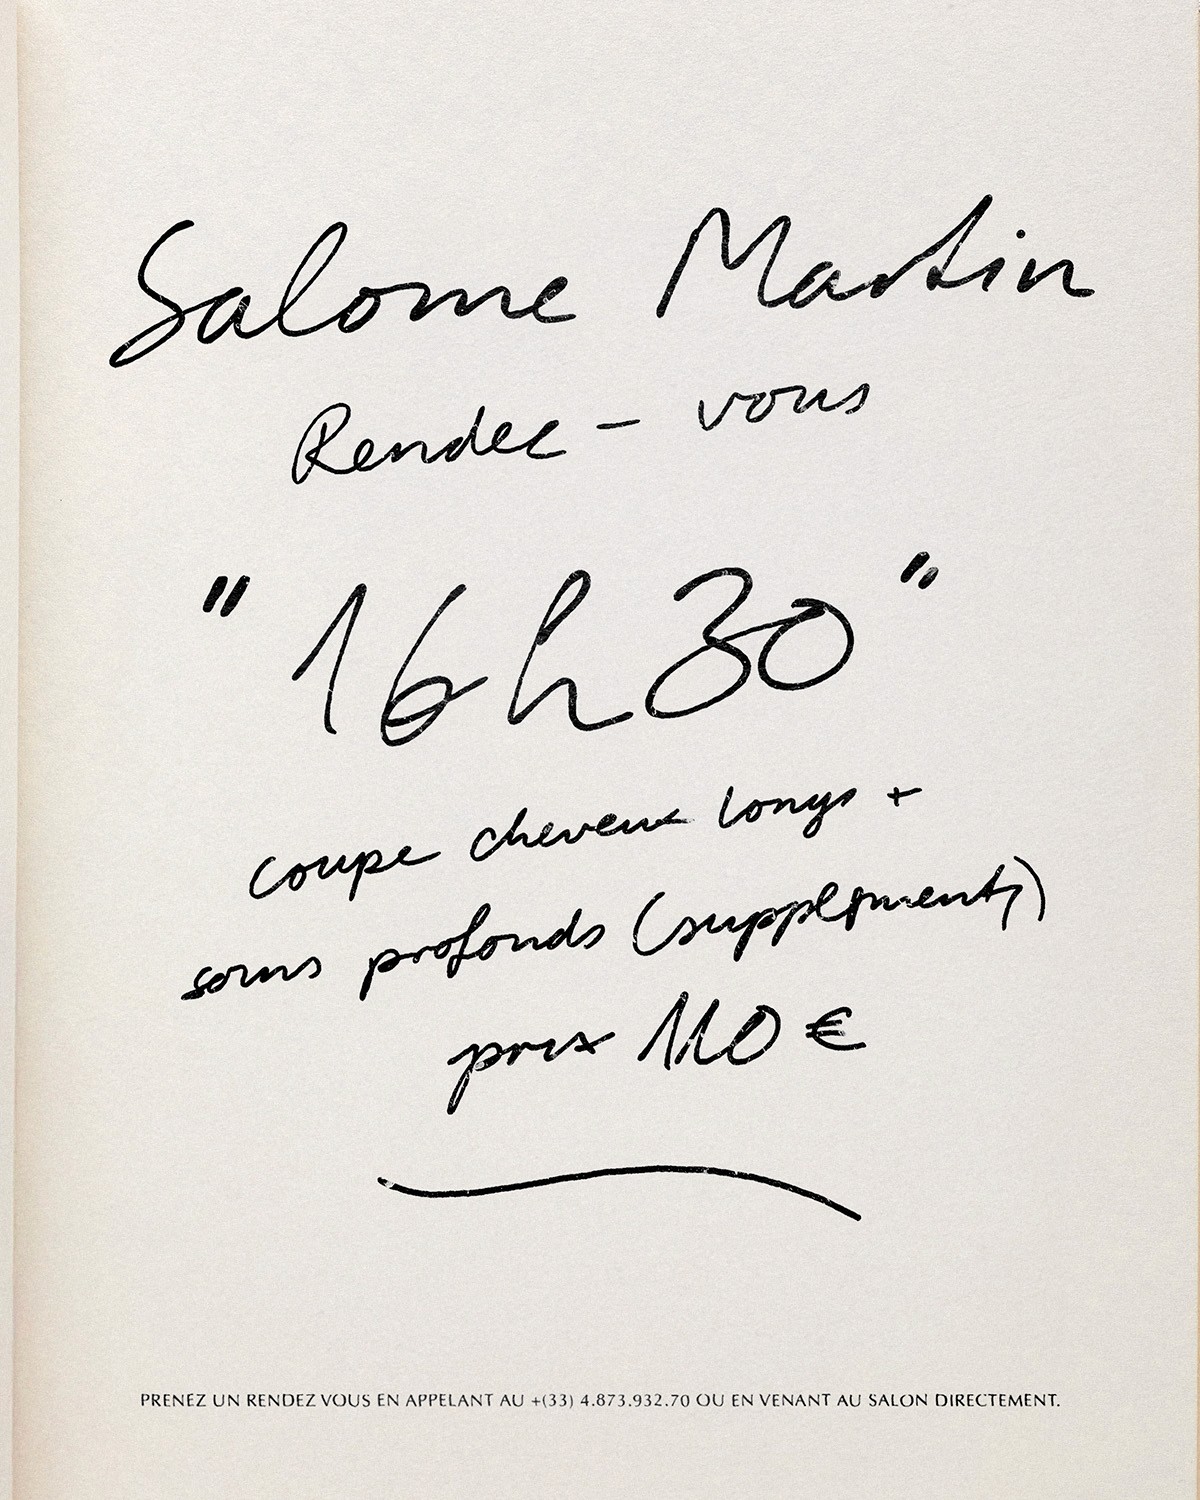 Salome Martin
Rendez - vous
"16h30"
coupe cheveux longs +
soins profonds (supplément)
prix 110 €
PRENEZ UN RENDEZ VOUS EN APPELANT AU +(33) 4.873.932.70 OU EN VENANT AU SALON DIRECTEMENT.